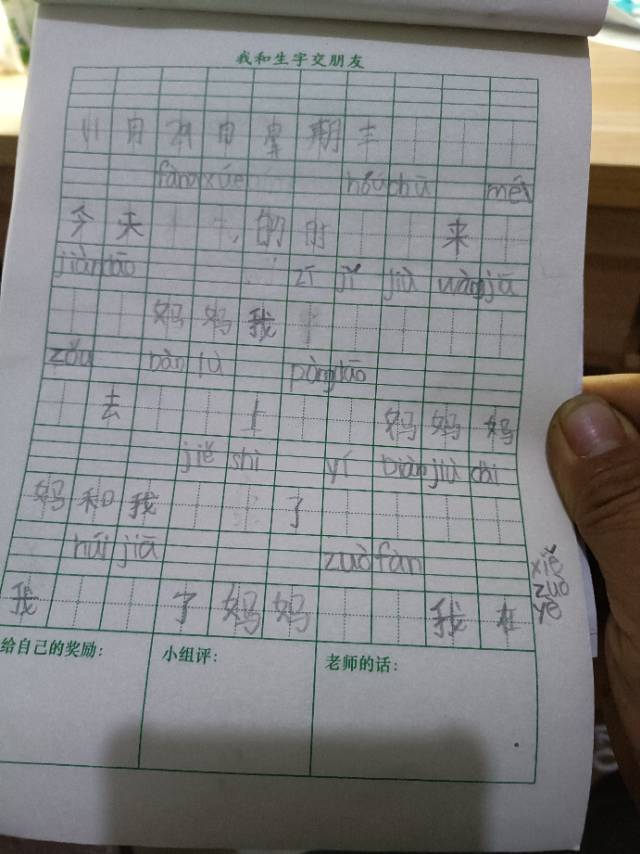 我和生字交朋友
11月 日 星期
fàng xué hòu chū mén
今天 的时 来
jiàn dāo zī jǐ jiù wàng jiā
妈妈我
zǒu bàn lù pèng dāo
去 上 妈妈 妈
jiě shì yí biàn jiù chī
妈和我 了
húi jiā zuò fàn
我 了妈妈 我在
xiě zuò yè
给自己的奖励:
小组评:
老师的话: